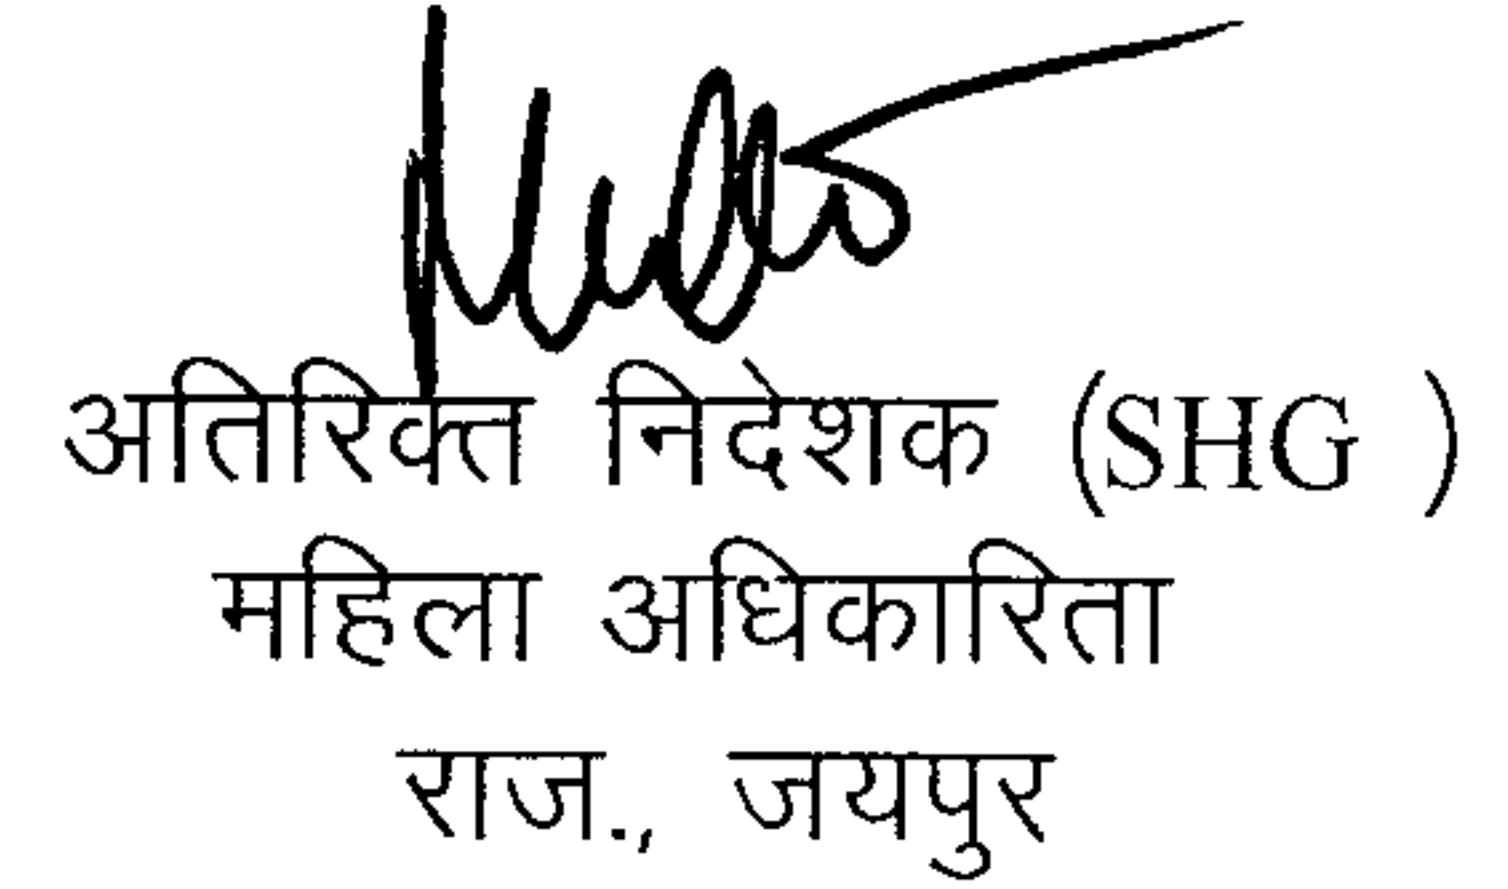 अतिरिक्त निदेशक (SHG )
महिला अधिकारिता
राज., जयपुर